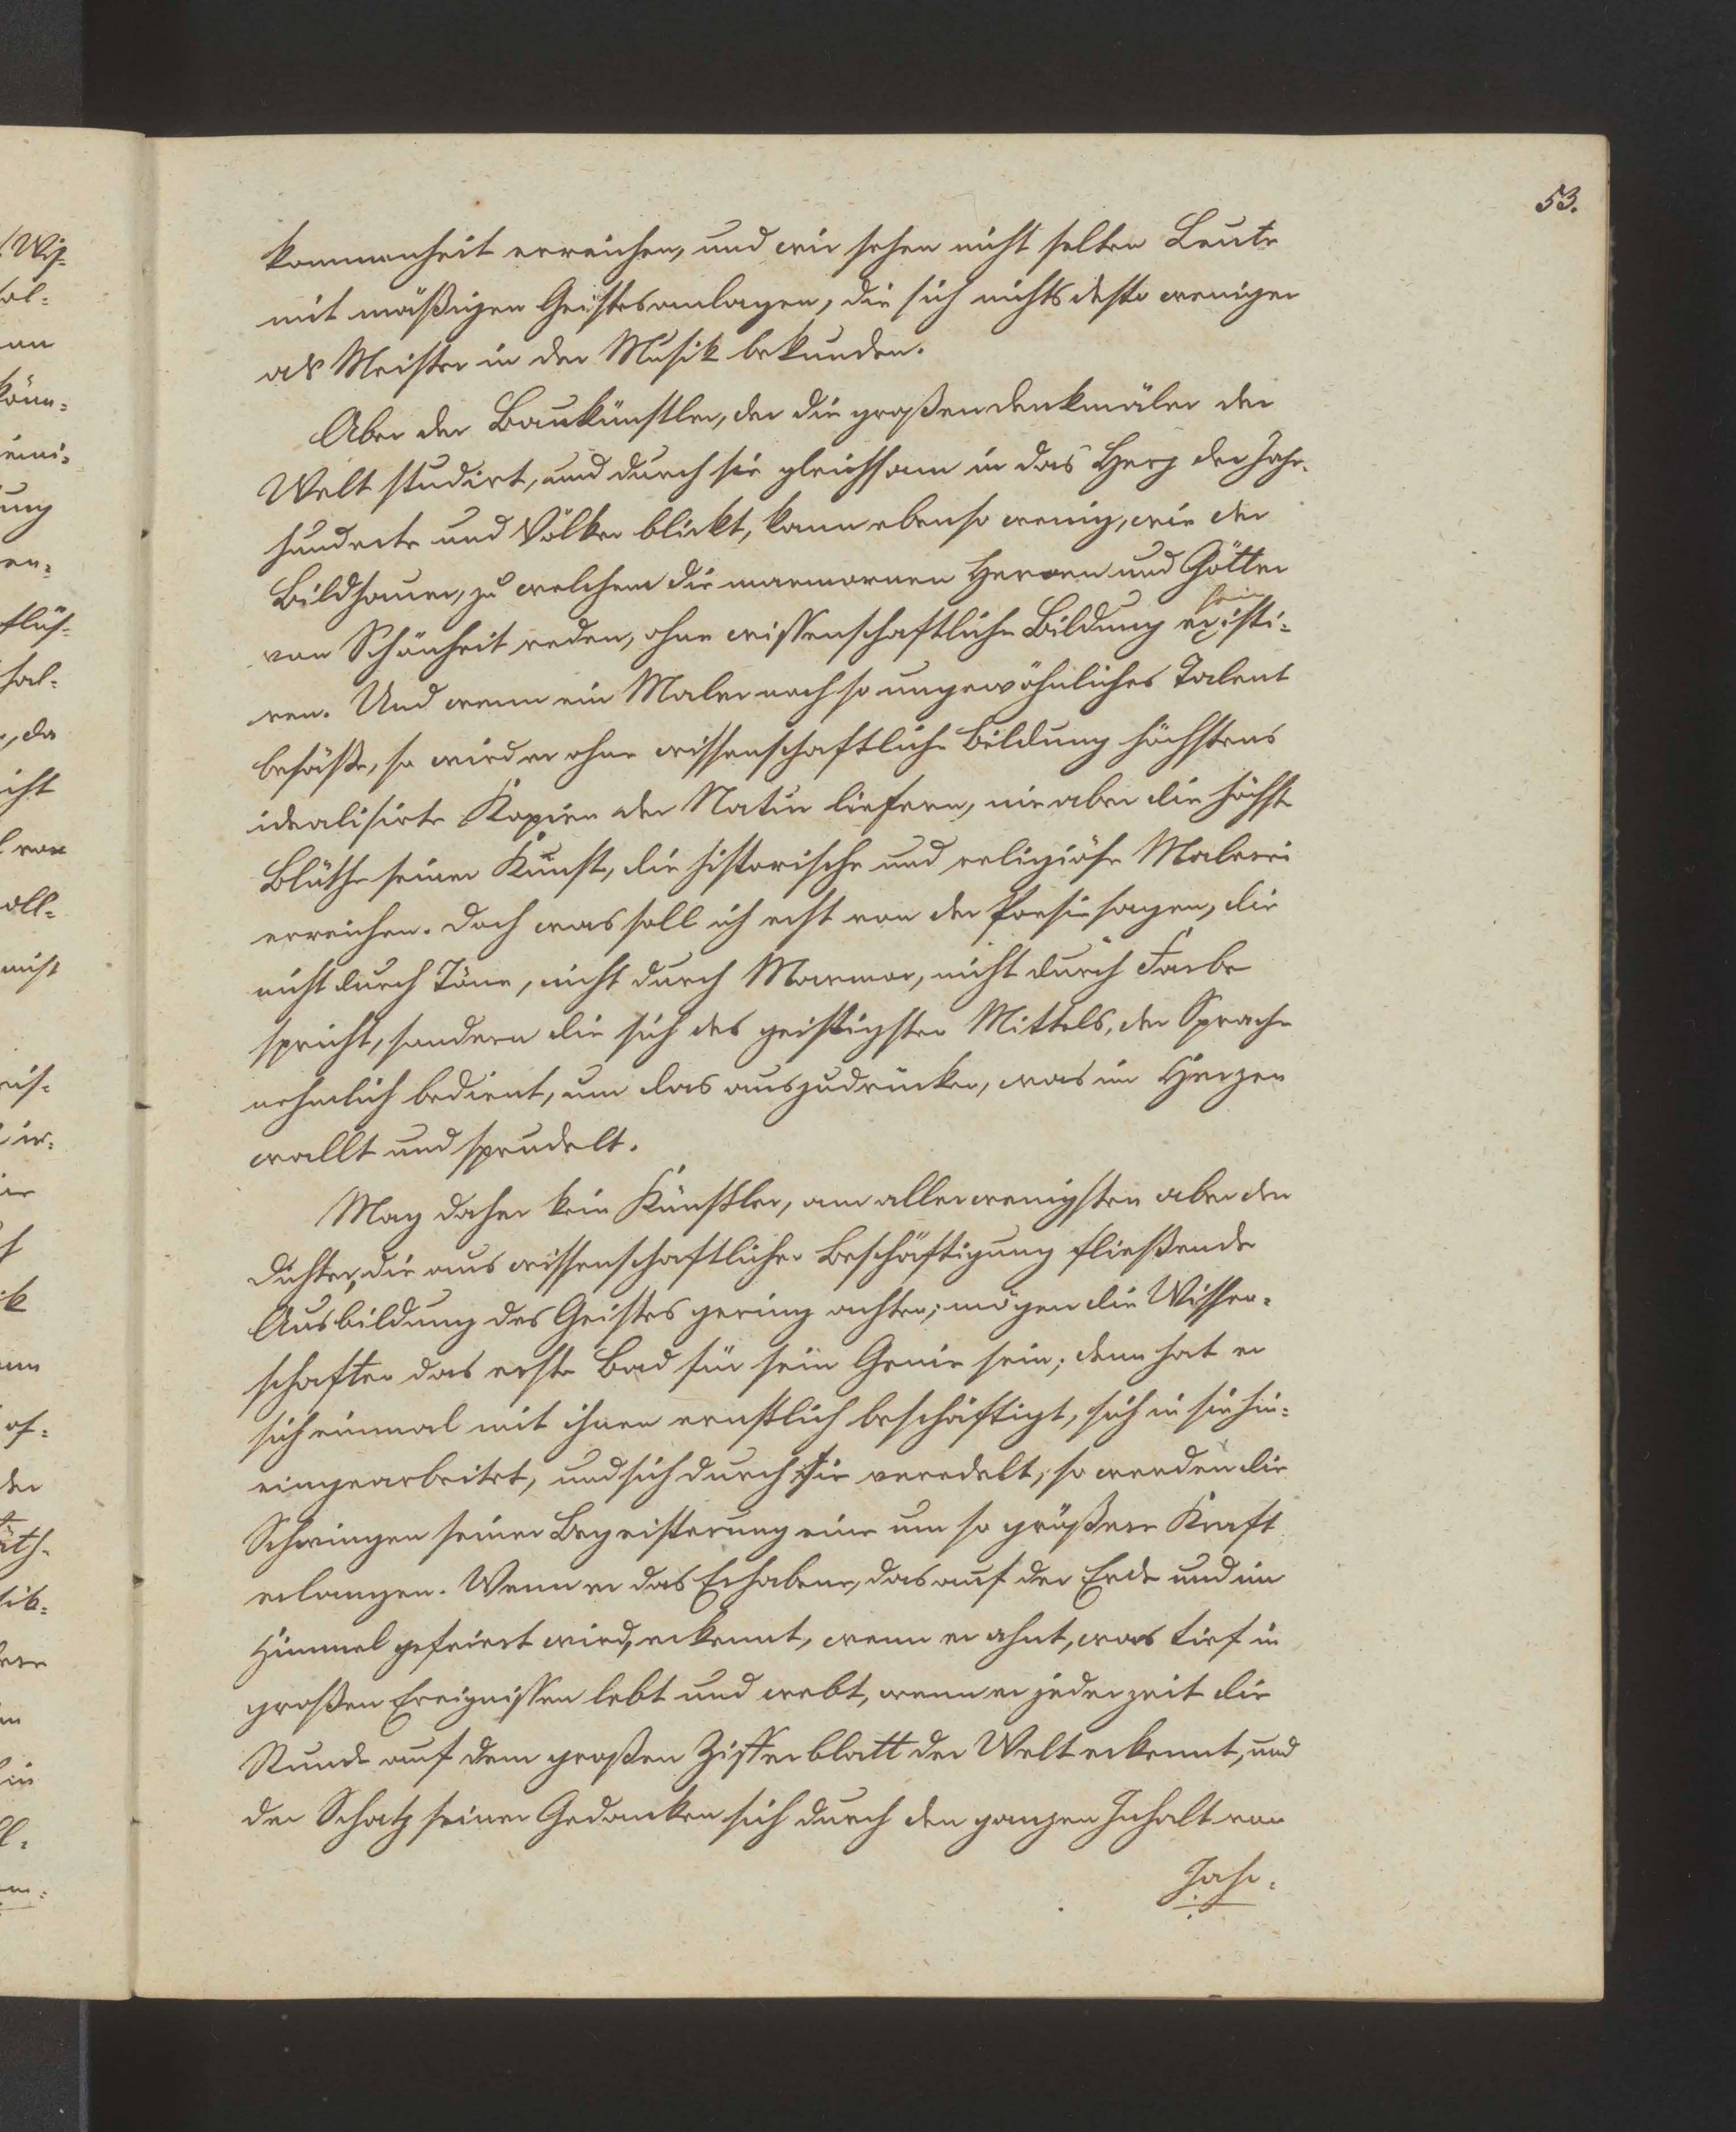 53.
kommenheit erreichen, und wir sehen nicht selten Leute
mit mäßigen Geistesanlagen, die sich nichts desto weniger
als Meister in der Musik bekunden.
Aber der Baukünstler, der die großen Denkmäler der
Welt studirt, und durch sie gleichsam in das Herz der Jahr-
hunderte und Völker blickt, kann ebenso wenig, wie der
Bildhauer, zu welchem die marmornen Heroen und Götter
sein
von Schönheit reden, ohne wissenschaftliche Bildung existi-
ren. Und wenn ein Maler noch so ungewöhnliches Talent
besäße, so wird er ohne wissenschaftliche Bildung höchstens
idealisirte Kopien der Natur liefern, nie aber die höchste
Blüthe seiner Kunst, die historische und religiöse Malerei
erreichen. Doch was soll ich erst von der Poesie sagen, die
nicht durch Töne, nicht durch Marmor, nicht durch Farbe
spricht, sondern die sich des geistigsten Mittels, der Sprache
nehmlich bedient, um das auszudrücken, was im Herzen
wallt und sprudelt.
Mag daher kein Künstler, am allerwenigsten aber der
Dichter, die aus wissenschaftlicher Beschäftigung fließende
Ausbildung des Geistes gering achten; mögen die Wissen-
schaften das erste Bad für sein Genie sein; denn hat er
sich einmal mit ihnen ernstlich beschäftigt, sich in sie hin-
eingearbeitet, und sich durch sie veredelt, so werden die
Schwingen seiner Begeisterung eine um so größere Kraft
erlangen. Wenn er das Erhabene, das auf der Erde und im
Himmel gefeiert wird, erkennt, wenn er ahnt, was tief in
großen Ereignissen lebt und webt, wenn er jederzeit die
Stunde auf dem großen Zifferblatt der Welt erkennt, und
der Schatz seiner Gedanken sich durch den ganzen Inhalt von
Jahr-